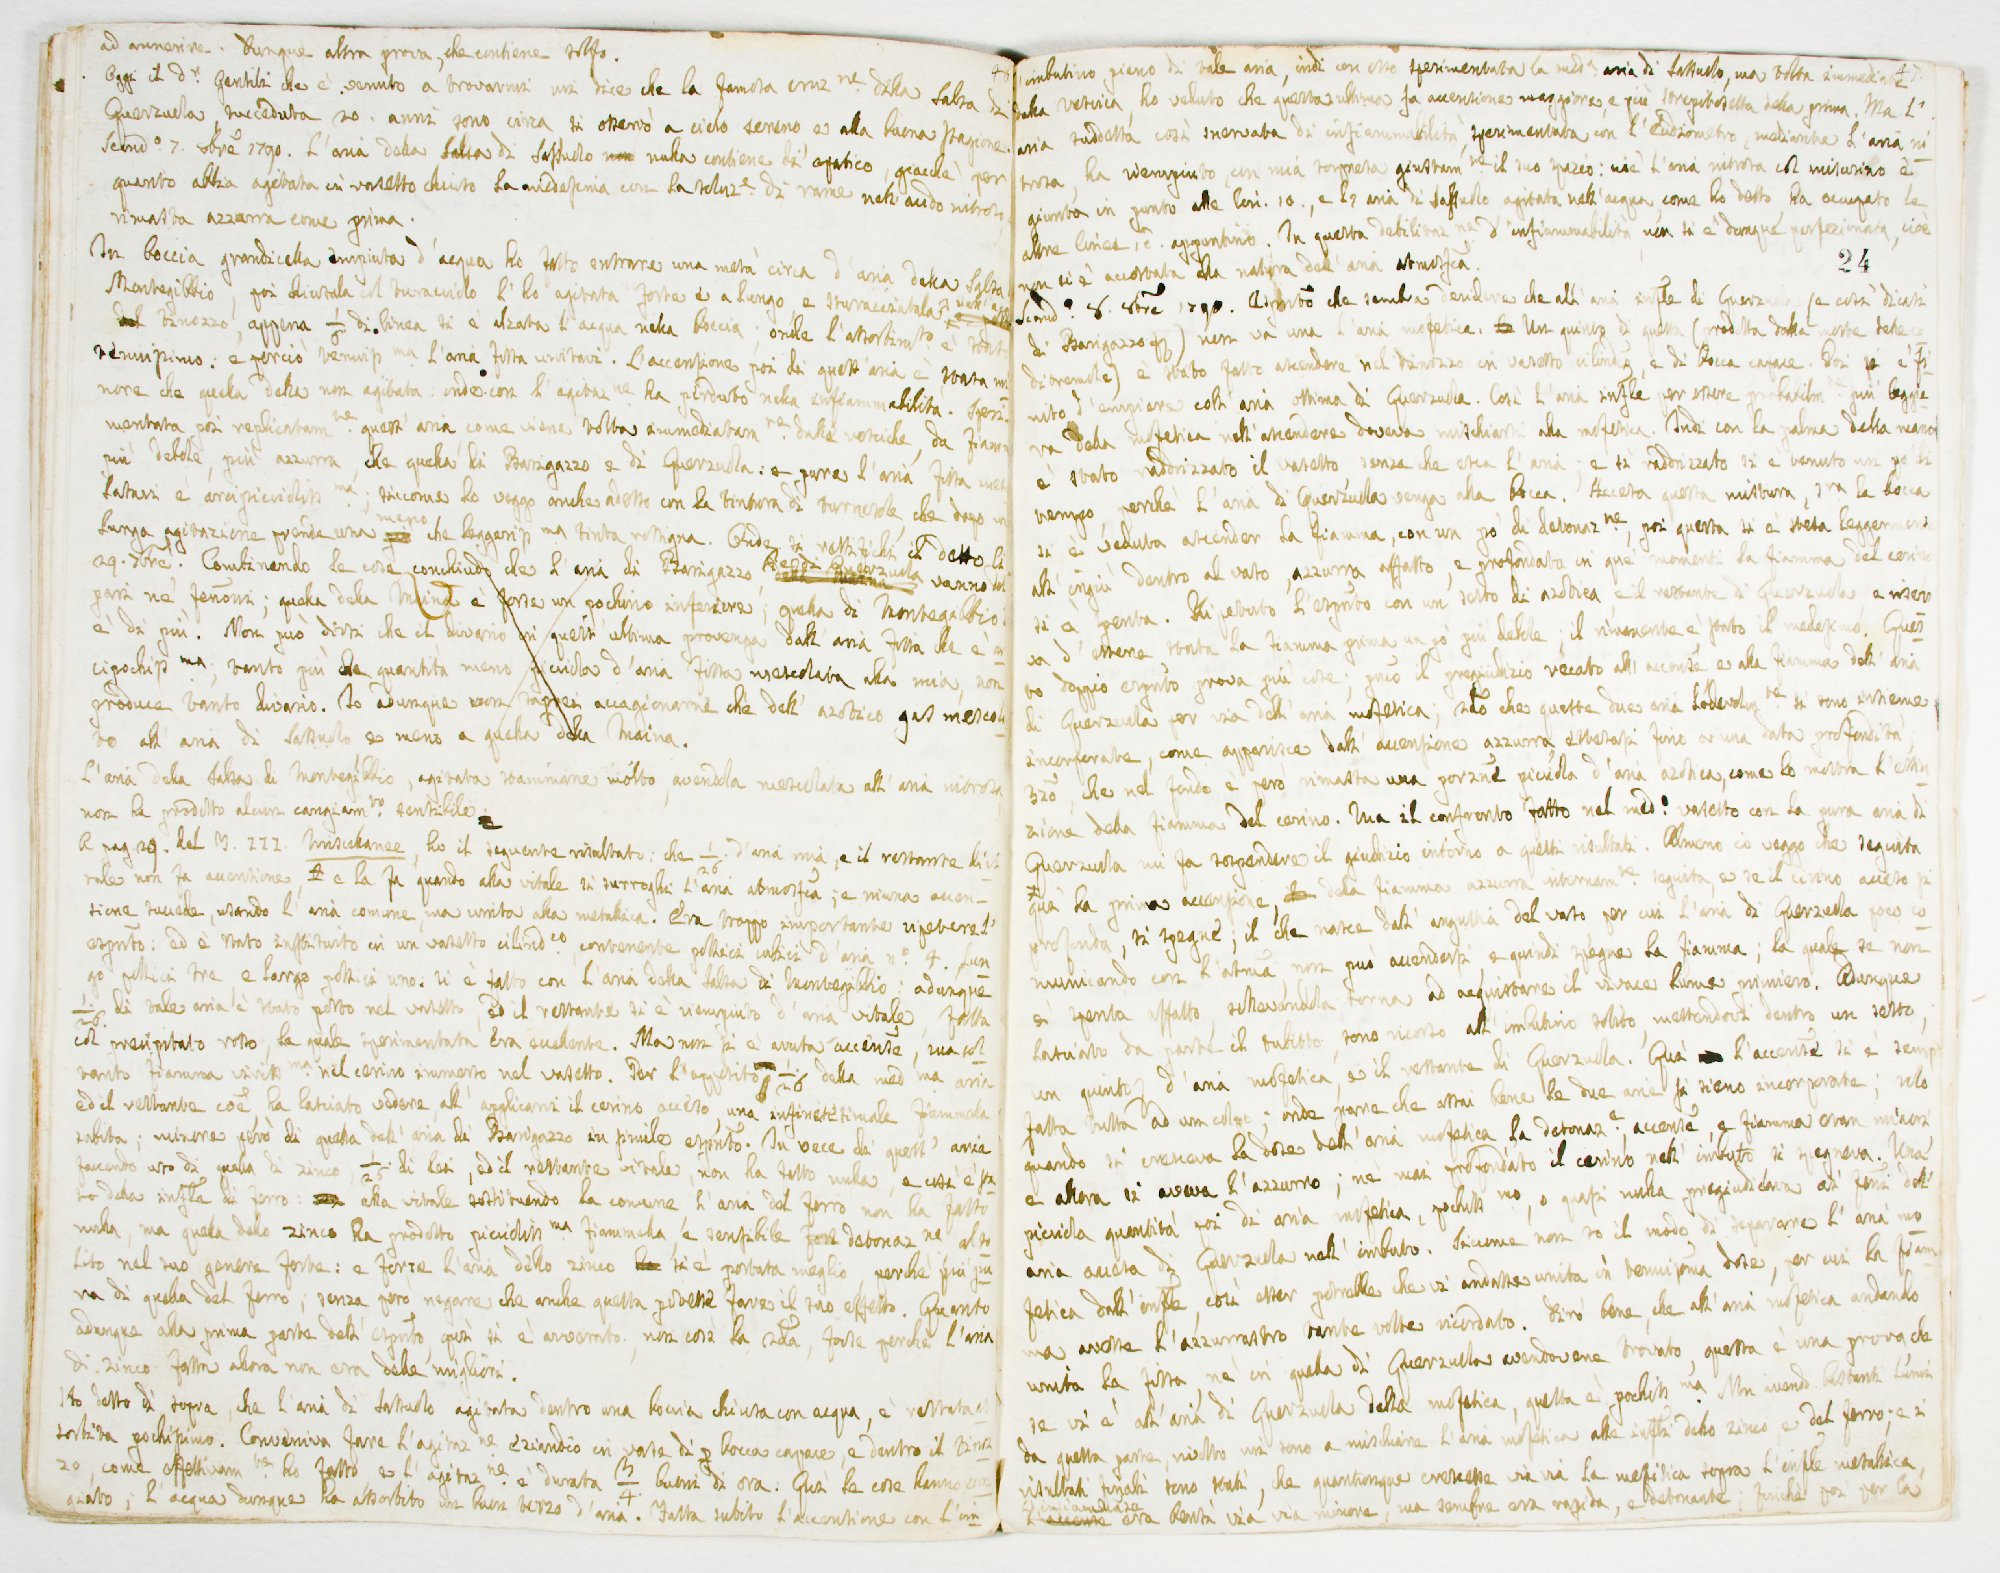 ad annerire. Dunque altra prova, che contiene solfo.
46
Oggi il Dr. Gentili che è venuto a trovarmi mi dice che la famosa eruz.ne della Salsa di
Querzuola, succeduta 20. anni sono circa si osservò a cielo sereno e alla buona stagione.
Scand.o 7. 8bre 1790. L'aria della Salsa di Sassuolo non nulla contiene di epatico, giacchè per
quanto abbia agitata in vasetto chiuso la medesima con la soluz.e di rame nell'acido nitroso,
rimasta azzurra come prima.
In boccia grandicella empiuta d'acqua ho fatto entrare una metà circa d'aria della Salsa
Montegibbio, poi chiusala col turacciolo l'ho agitata forte e a lungo, e sturacciatala
tinozzo, appena 1/6 di linea si è alzata l'acqua nella boccia; onde l'assorbim.to è stato
tenuissimo: e perciò tenuiss.ma l'aria fissa unitavi. L'accensione poi di quest'aria è stata mi
nore che quella della non agitata: onde con l'agitaz.ne ha perduto nella infiammabilità. Speri
mentata poi replicatam.te quest'aria come viene tolta immediatam.te dalle vesciche, da fiamma
più debole, più azzurra, che quella di Barigazzo e di Querzuola: e pure l'aria fissa me
latavi è arcipicciolis.ma; siccome lo veggo anche adesso con la tintura di turnesole, che dopo un
lunga agitazione prende una meno che leggeriss.ma tinta rossigna. Onde si rettifichi il detto li
29. 7bre. Combinando le cose conchiudo che l'aria di Barigazzo, Querzuola vanno del
pari ne' fenomi; quella della Maina è forse un pochino inferiore; quella di Montegibbio
è di più. Non può dirsi che il divario in quest'ultima provenga dall'aria fissa che è ar
cipochiss.ma; tanto più che quantità meno picciola d'aria fissa mescolata alla mia, non
produce tanto divario. Io adunque non saprei accagionarne che dell'azotico gas mescola
to all'aria di Sassuolo, e meno a quella della Maina.
L'aria della Salsa di Montegibbio, agitata stammane molto, avendola mescolata all'aria nitrosa,
non ha prodotto alcun cangiam.to sensibile.
A pag. 29. del N. III. Miscellanee, ho il seguente risultato: che 1/26. d'aria mia, e il restante di vi
tale non fa accensione, e la fa quando alla vitale si surroghi l'aria atmosfca; e niuna accen-
sione succede, usando l'aria comune, ma unita alla metallica. Era troppo importante ripetere l'
esprto: ed è stato instituito in un vasetto cilind.co, contenente pollici cubici d'aria n.o 4. lun
go pollici tre, e largo pollici uno. Si è fatto con l'aria della Salsa di Montegibbio: adunque
1/26. di tale aria è stato posto nel vasetto, ed il restante si è riempiuto d'aria vitale, fatta
col precipitato rosso, la quale sperimentata era eccellente. Ma non si è avuta accense, ma sol
tanto fiamma viviss.ma nel cerino immerso nel vasetto. Per l'opposito 1/26 della med.ma aria
ed il restante coe, ha lasciato vedere all'applicarvi il cerino acceso, una infinitesimale fiammella
subita; minore però di quella dell'aria di Barigazzo in simile esprto. In vece di quest'aria
facendo uso di quella di zinco 1/26. di lei, ed il restante vitale, non ha fatto nulla, e così è sta
to della infle di ferro: alla vitale sostituendo la comune l'aria del ferro non ha fatto
nulla, ma quella dello zinco ha prodotto piccioliss.ma fiammella, e sensibile detonaz.ne al so
lito nel suo genere forte: e forse l'aria dello zinco si è portata meglio, perchè più pu
ra di quella del ferro; senza però negare che anche questa potesse fare il suo effetto. Quanto
adunque alla prima parte dell'esprto, quì si è avverato; non così la 2da, forse perchè l'aria
di zinco fatta allora non era delle migliori.
Ho detto di sopra, che l'aria di Sassuolo agitata dentro una boccia chiusa con acqua, è restata as
sorbita pochissimo. Conveniva fare l'agitaz.ne eziandio in vase di bocca capace, e dentro il tinoz
zo, come effettivam.te ho fatto, e l'agitaz.ne è durata 3/4 buoni di ora: Quì le cose hanno
giato; l'acqua dunque ha assorbito un buon terzo d'aria. Fatta subito l'accensione con l'im
47.
imbutino pieno di tale aria, indi con esso sperimentata la med.a aria di Sassuolo, ma tolta immediate
dalla vescica, ho veduto che quest'ultima fa accensione maggiore, e più strepitosetta della prima. Ma l'
aria suddetta così snervata di infiammabilità, sperimentata con l'eudiometro, mediante l'aria ni
trosa, ha riempiuto, con mia sorpresa giustam.te il suo spazio: cioè l'aria nitrosa col misurino è
giunta in punto alle lin. 10., e l'aria di Sassuolo agitata nell'acqua, come ho detto ha occupato le
altre linee appuntino. In questa debilitaz.ne d'infiammabilità non si è dunque perfezionata, cioè
non si è accostata alla natura dell'aria atmosfca.
24
Scand.o 8. 8bre 1790. Esprto che sembra decidere che all'aria infle di Querzuola (e così dicasi
di Barigazzo) non va una l'aria mofetica. Un quinto di questa (prodotta dalla morte delle
) è stato fatto ascendere nel tinozzo in vasetto cilindco, e di bocca capace. Poi si è fi
nito d'empiere coll'aria ottima di Querzuola. Così l'aria infle per essere probabilm.te più leggie
ra della mofetica nell'ascendere doveva mischiarsi alla mofetica. Indi con la palma della mano
è stato raddrizzato il vasetto senza che esca l'aria; e si raddrizzato si è tenuto un po' di
tempo, perchè l'aria di Querzuola venga alla bocca. Accesa questa mistura, la bocca
si è veduta ascender la fiamma, con un po' di detonaz.ne, poi questa si è stesa leggermente
all'ingiù dentro al vaso, azzurra affatto, e profondato in que' momenti la fiamma del cerino
si è spenta. Ripetuto l'esprto con un sesto di azotica e il restante di Querzuola,
va d'essere stata la fiamma prima un po' più debole; il rimanente è stato il medesimo. Ques
to doppio esprto prova più cose; pmo il pregiudizio recato all'accense e alla fiamma dell'aria
di Querzuola per via dell'aria mofetica; 2do che queste due arie lodevolm.te si sono insieme
incorporate, come apparisce dall'accensione azzurra estesasi fino a una data profondità;
3zo, che nel fondo è però rimasta una porzne picciola d'aria azotica, come lo mostra l'estin
zione della fiamma del cerino. Ma il confronto fatto nel med.o vasetto con la pura aria di
Querzuola mi fa sospendere il giudizio intorno a questi risultati. Almeno io veggo che seguita
quà la prima accensione, della fiamma azzurra internam.te seguita, e se il cerino acceso si
profonda, si spegne; il che nasce dall'angustia del vaso per cui l'aria di Querzuola poco co
municando con l'atma, non può accendersi, e quindi spegne la fiamma; la quale se non
è spenta affatto, sollevandola torna ad acquistare il vivace lume primiero. Adunque
lasciato da parte il tubetto, sono ricorso all'imbutino solito, mettendovi dentro un sesto,
un quinto d'aria mofetica, e il restante di Querzuola. Quà l'accense si è sempre
fatta tutta ad un colpo; onde pare che assai bene le due arie si sieno incorporate; solo
quando si cresceva la dose dell'aria mofetica la detonaz.e, accense, e fiamma eran minori
e allora si aveva l'azzurro; nè mai profondato il cerino nell'imbuto si spegneva. Una
picciola quantità poi di aria mofetica, pochiss.mo, o quasi nulla pregiudicava ai fenni dell'
aria accesa di Querzuola nell'imbuto. Siccome non so il modo di separare l'aria mo
fetica dall'infle, così esser potrebbe che vi andasse unita in tenuissma dose, per cui la fiam
ma avesse l'azzurrastro tante volte ricordato. Dirò bene, che all'aria mofetica andando
unita la fissa, nè in quella di Querzuola avendovene trovato, questa è una prova che
se vi è all'aria di Querzuola della mofetica, questa è pochiss.ma. Non avendo bastanti lumi
da questa parte, rivolto mi sono a mischiare l'aria mofetica alle infli dello zinco, e del ferro; e i
risultati finali sono stati, che quantunque crescesse via via la mofetica sopra l'infle metallica,
l'accense era bensì via via minore, ma sempre era rapida, e detonante; finchè poi per la